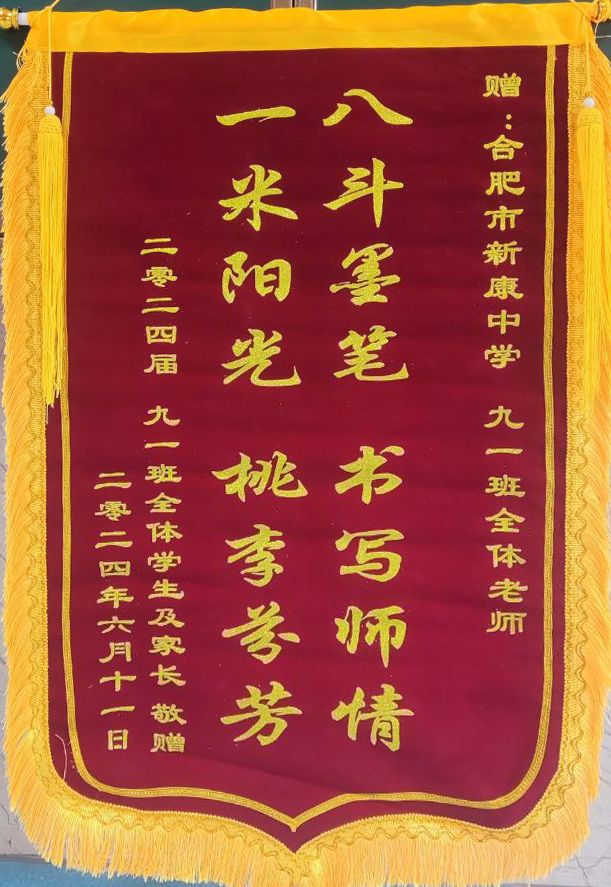 赠：合肥市新康中学 九一班全体老师
八斗墨笔 书写师情
一米阳光 桃李芬芳
二零二四届 九一班全体学生及家长 敬赠
二零二四年六月十一日